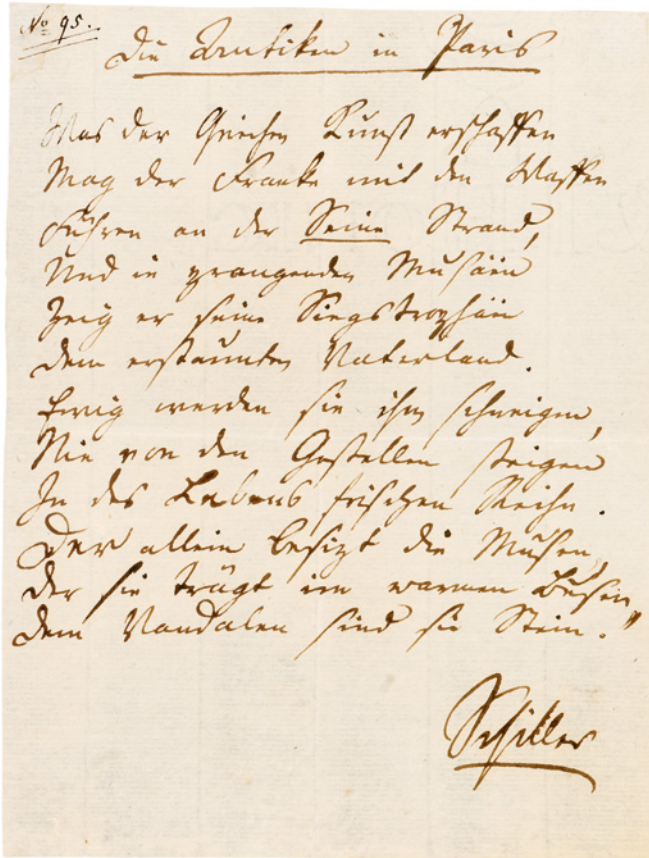 No 95.
Die Antiken in Paris
Was der Griechen Kunst erschaffen
Mag der Franke mit den Waffen
Führen an der Seine Strand,
Und in prangenden Musäen
Zeig er seine Siegstrophäen
Dem erstaunten Vaterland.
Ewig werden sie ihm schweigen,
Nie von den Gestellen steigen
In des Lebens frischen Reihn.
Der allein besizt die Musen,
Der sie trägt im warmen Busen,
Dem Vandalen sind sie Stein."
Schiller